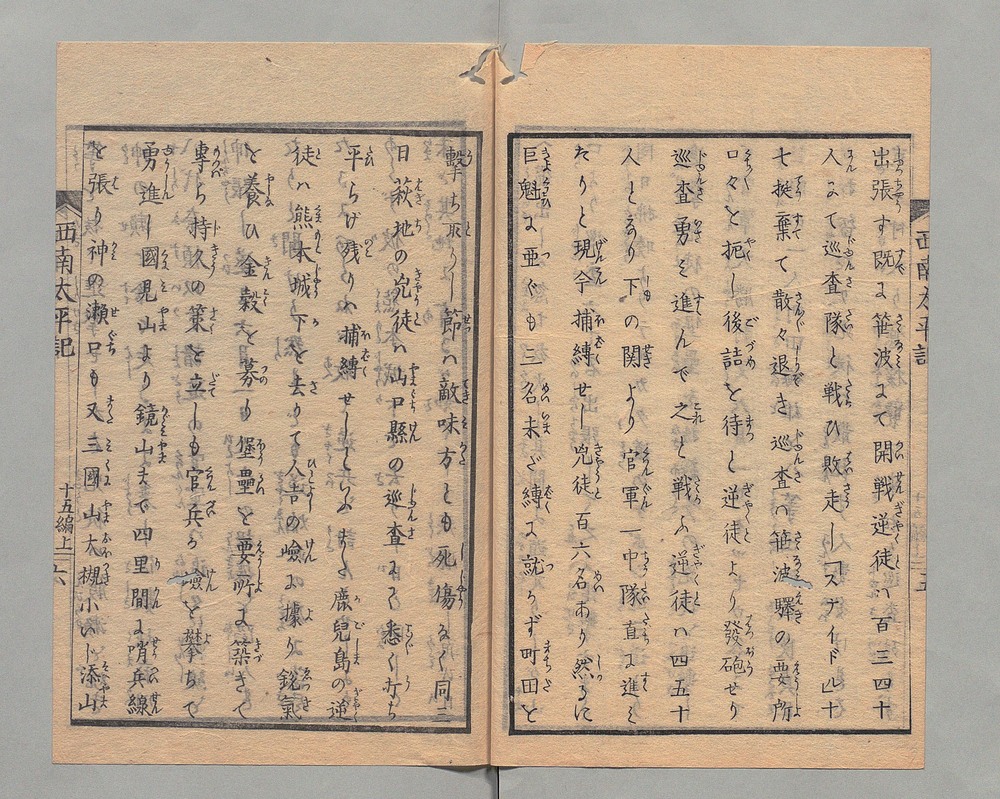 出張す既に笹波にて開戦逆徒ハ百三四十
人にて巡査隊と戦ひ敗走し「スナイドル」十
七挺棄て散々退き巡査ハ笹波驛の要所
口々を扼し後詰を待と逆徒より發砲せり
巡査勇を進んで之と戦ふ逆徒ハ四五十
人となり下の関より官軍一中隊直に進ミ
たりと現今捕縛せし兇徒百六名あり然るに
巨魁に亜ぐも三名未だ縛に就かず町田を
撃ち取りし節ハ敵味方とも死傷なく同三
日萩地の兇徒ハ山口縣の巡査にて悉く打ち
平らげ残りハ捕縛せし鹿兒島の逆
徒ハ熊本城下を去りて人吉の嶮に據り鋭氣
を養ひ金穀を募り堡壘を要所に築きて
專ら持久の策を立しも官兵ら嶮を攀ちて
勇進し國見山より鏡山まで四里間に哨兵線
を張り神の瀬口も又三國山大槻小いじ添山
西南太平記
十五編上
六
西南太平記
五